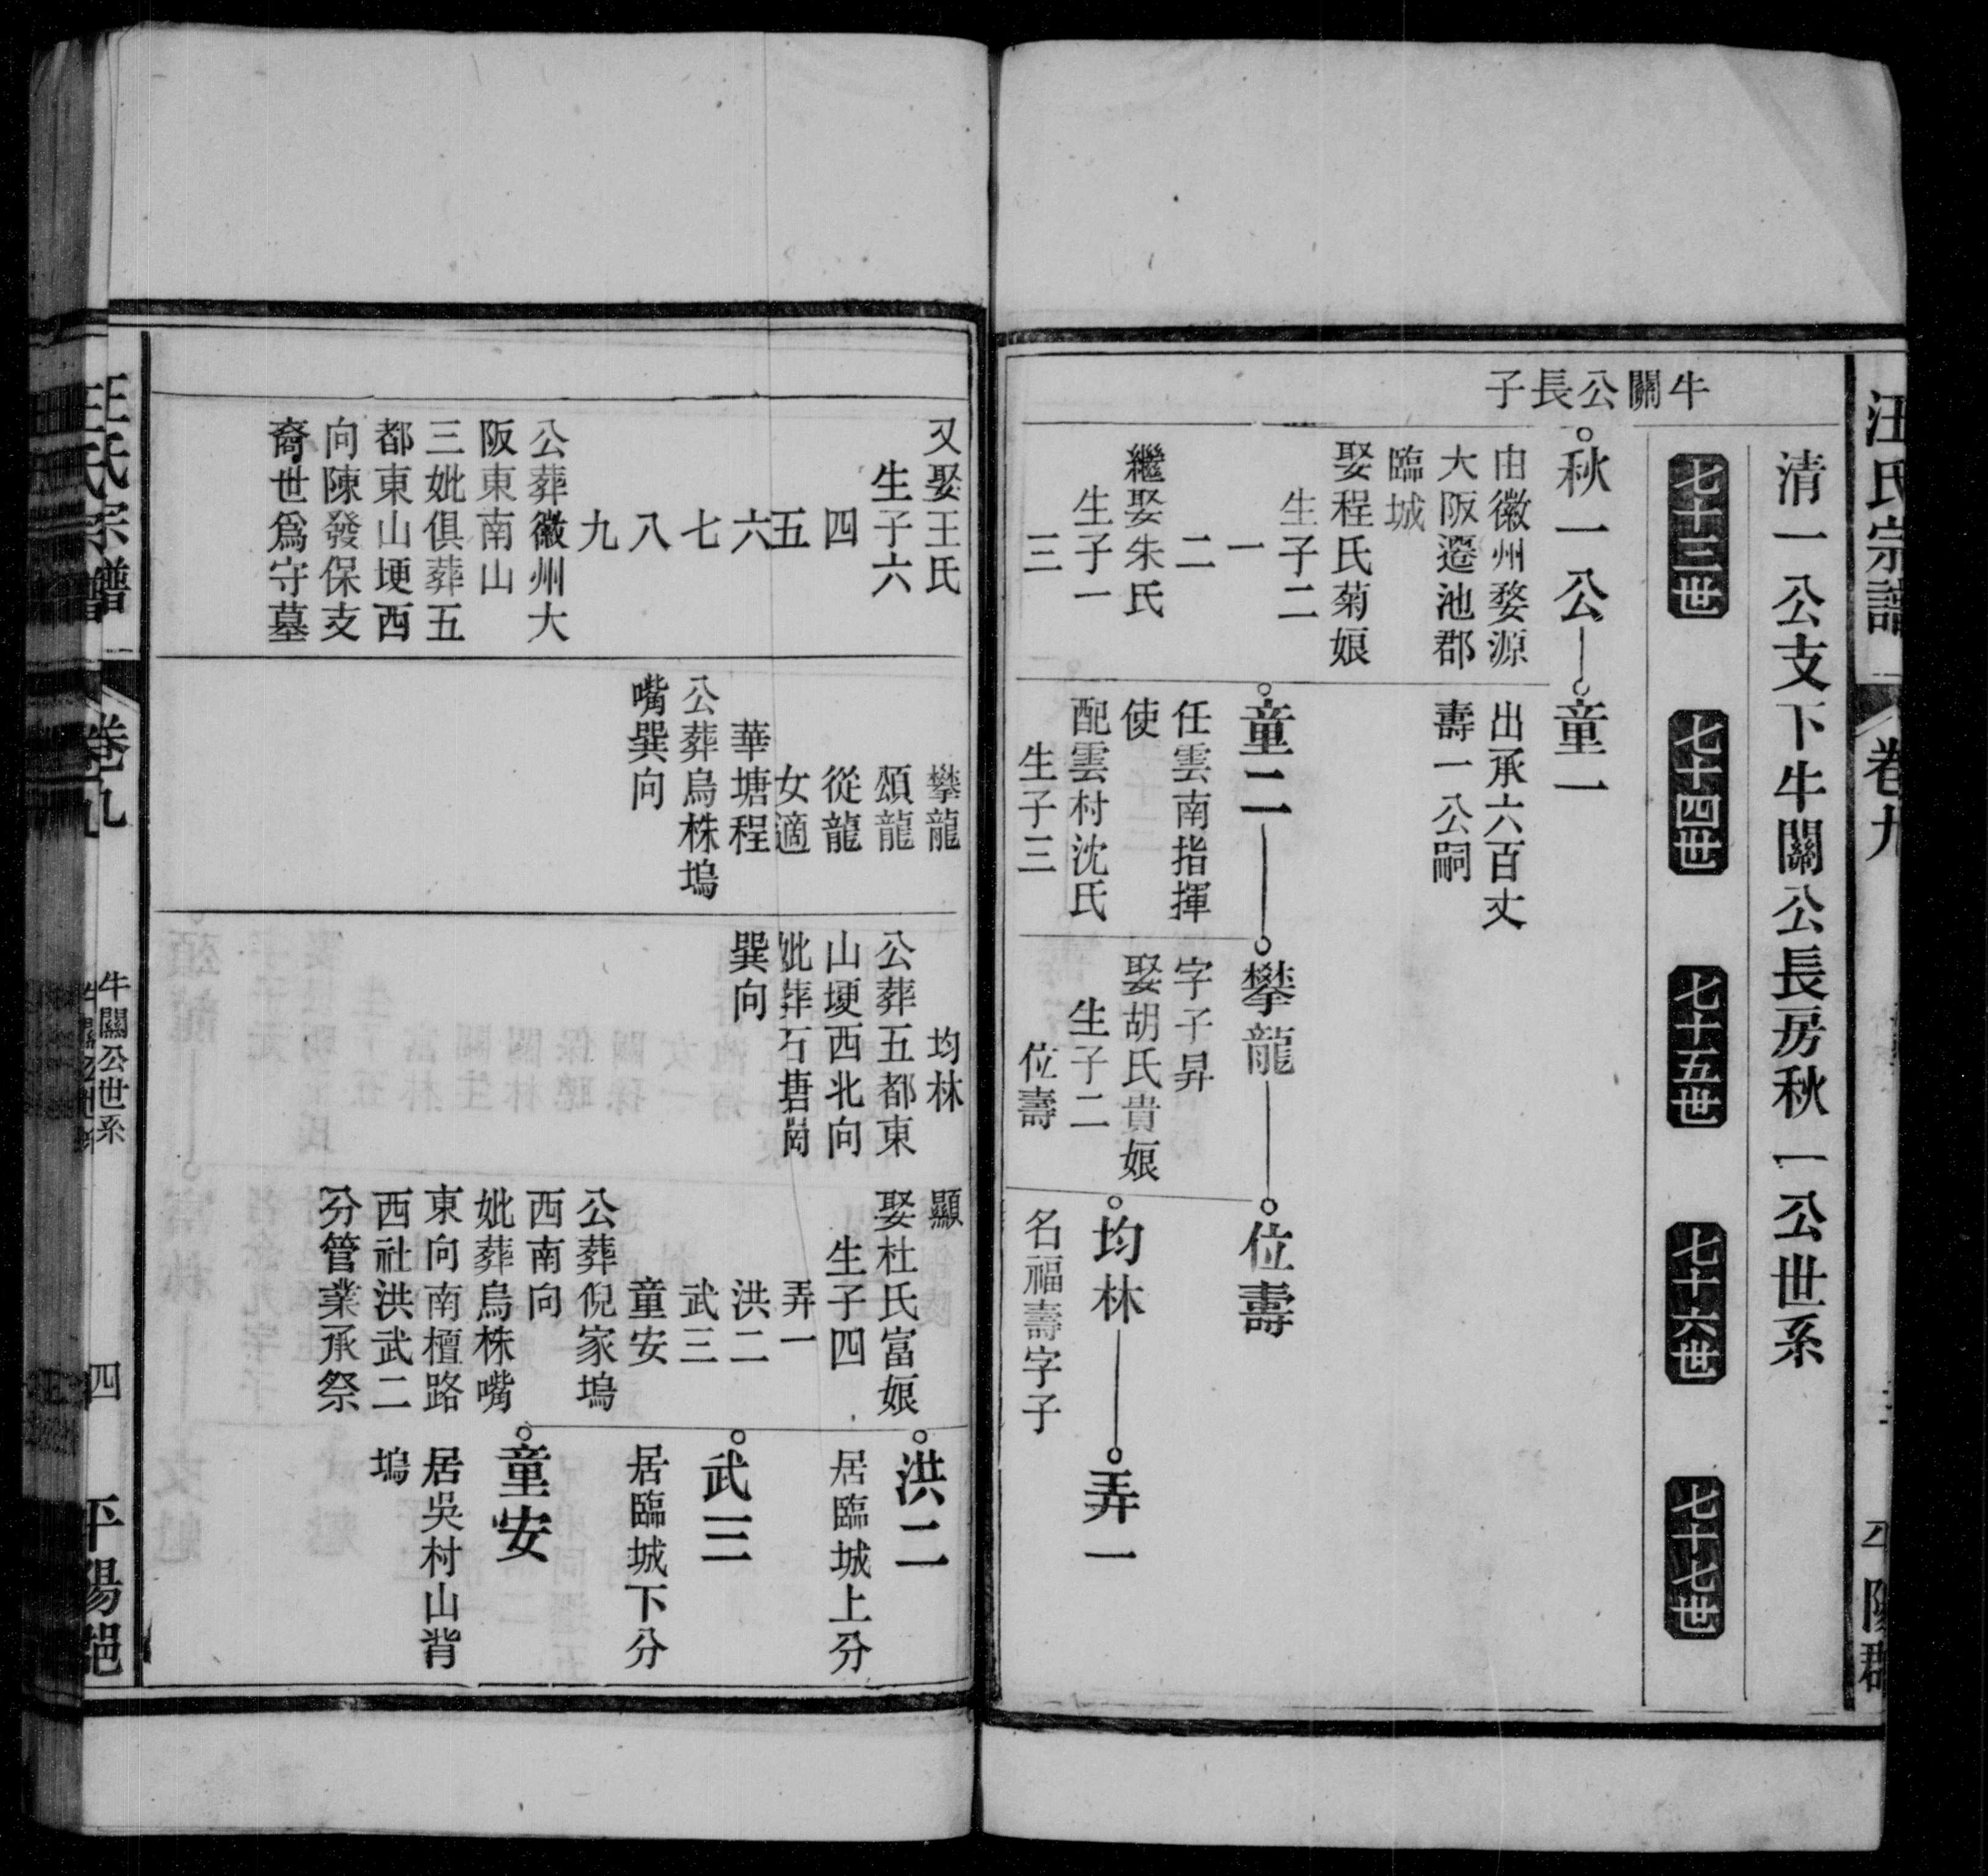 汪氏宗譜
卷九
清一公支下牛關公長房秋一公世系
七十三世
七十四世
七十五世
七十六世
七十七世
牛關公長子
秋一公
由徽州婺源
大阪遷池郡
臨城
娶程氏菊娘
生子二
一
二
繼娶朱氏
生子一
三
童一
出承六百丈
壽一公嗣
童二
任雲南指揮
使
配雲村沈氏
生子三
攀龍
字子昇
娶胡氏貴娘
生子二
位壽
位壽
均林
名福壽字子
弄一
又娶王氏
生子六
四
五
六
七
八
九
公葬徽州大
阪東南山
三妣俱葬五
都東山埂西
向陳發保支
裔世爲守墓
攀龍
頌龍
從龍
女適
華塘程
公葬烏株塢
嘴巽向
均林
公葬五都東
山埂西北向
妣葬石唐崗
巽向
顯
娶杜氏富娘
生子四
弄一
洪二
武三
童安
公葬倪家塢
西南向
妣葬烏株嘴
東向南檀路
西社洪武二
分管業承祭
洪二
居臨城上分
武三
居臨城下分
童安
居吳村山背
塢
卷九
牛關公世系
四